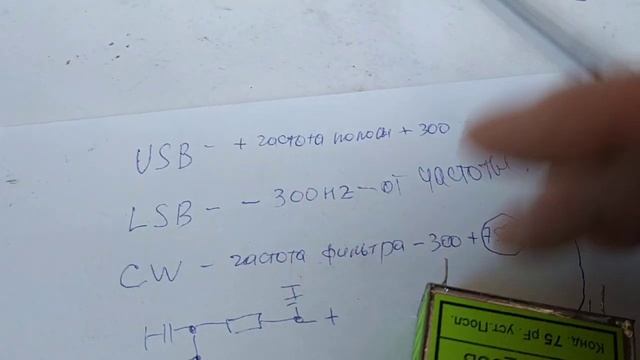 USB - + частота полосы + 300
LSB - - 300Hz - от частоты
CW - частота фильтра - 300 +
+
Конд. 75 pF. уст.Посл.